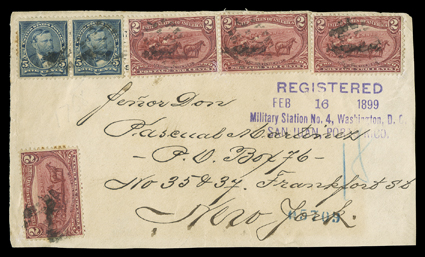 REGISTERED
FEB 16 1899
Military Station No. 4, Washington, D. C.
SAN JUAN, PORTO RICO.
Señor Don
Pascual
- P. O. Box 76 -
No 35 & 37. Frankfort St
New York.